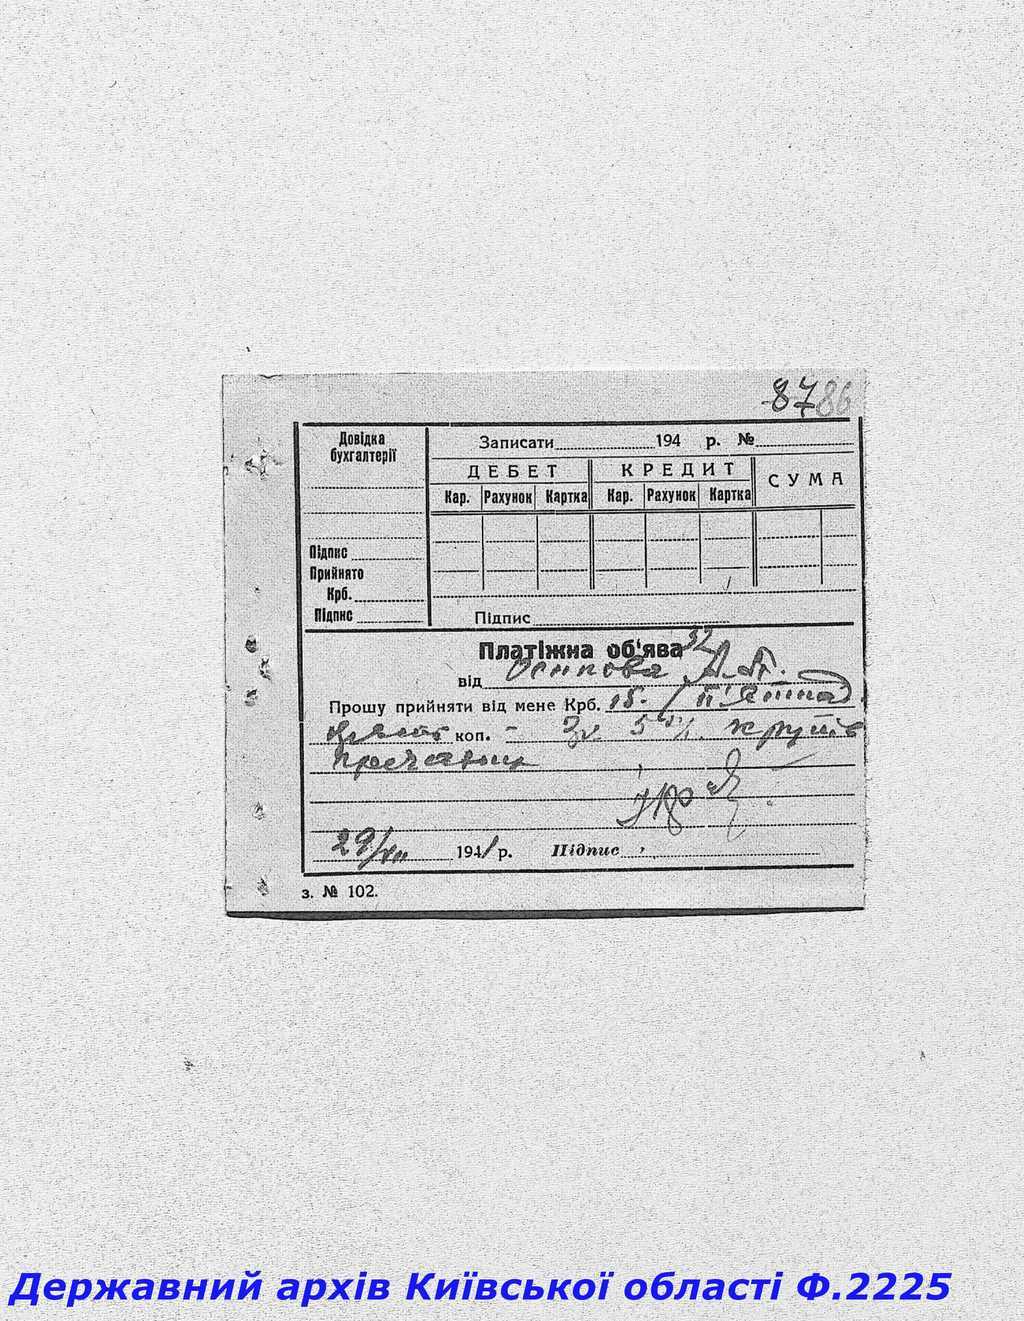 87 86
Довідка
бухгалтерії
Підпис
Прийнято
Крб.
Підпис
Записати 194 р. №
ДЕБЕТ КРЕДИТ СУМА
Кар. Рахунок Картка Кар. Рахунок Картка
Підпис
Платіжна об'ява 32
від Осипова
Прошу прийняти від мене Крб. 15. / п'ятнад
коп. - За 5
29/VII 1941 р. Підпис
з. № 102.
Державний архів Київської області Ф.2225